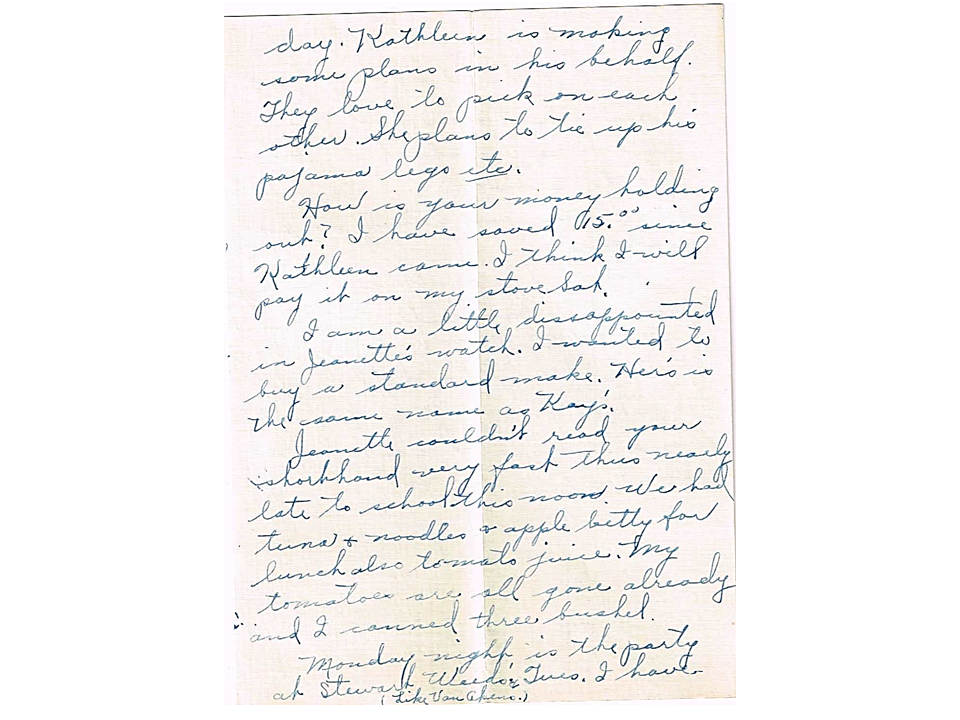 day. Kathleen is making
some plans in his behalf.
They love to pick on each
other. She plans to tie up his
pajama legs etc.
How is your money holding
out? I have saved 15.00 since
Kathleen came. I think I will
pay it on my stove Sat.
I am a little dissappointed
in Jeanette's watch. I wanted to
buy a standard make. Her's is
the same name as Kay's.
Jeanette couldn't read your
shorthand very fast thus nearly
late to school this noon. We had
tuna & noodles & apple betty for
lunch also tomato juice. My
tomatoes are all gone already
and I canned three bushel.
Monday night is the party
at Stewart Weeds; Tues. I have
(Like Van Akens.)